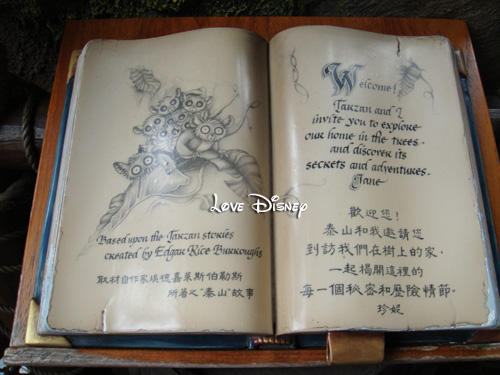 Based upon the Tarzan stories
created by Edgar Rice Burroughs
取材自作家埃德嘉萊斯伯勒斯
所著之“泰山”故事
Love Disney
Welcome!
Tarzan and I
invite you to explore
our home in the trees
and discover its
secrets and adventures.
Jane
歡迎您!
泰山和我邀請您
到訪我們在樹上的家,
一起揭開這裡的
每一個秘密和歷險情節。
珍妮